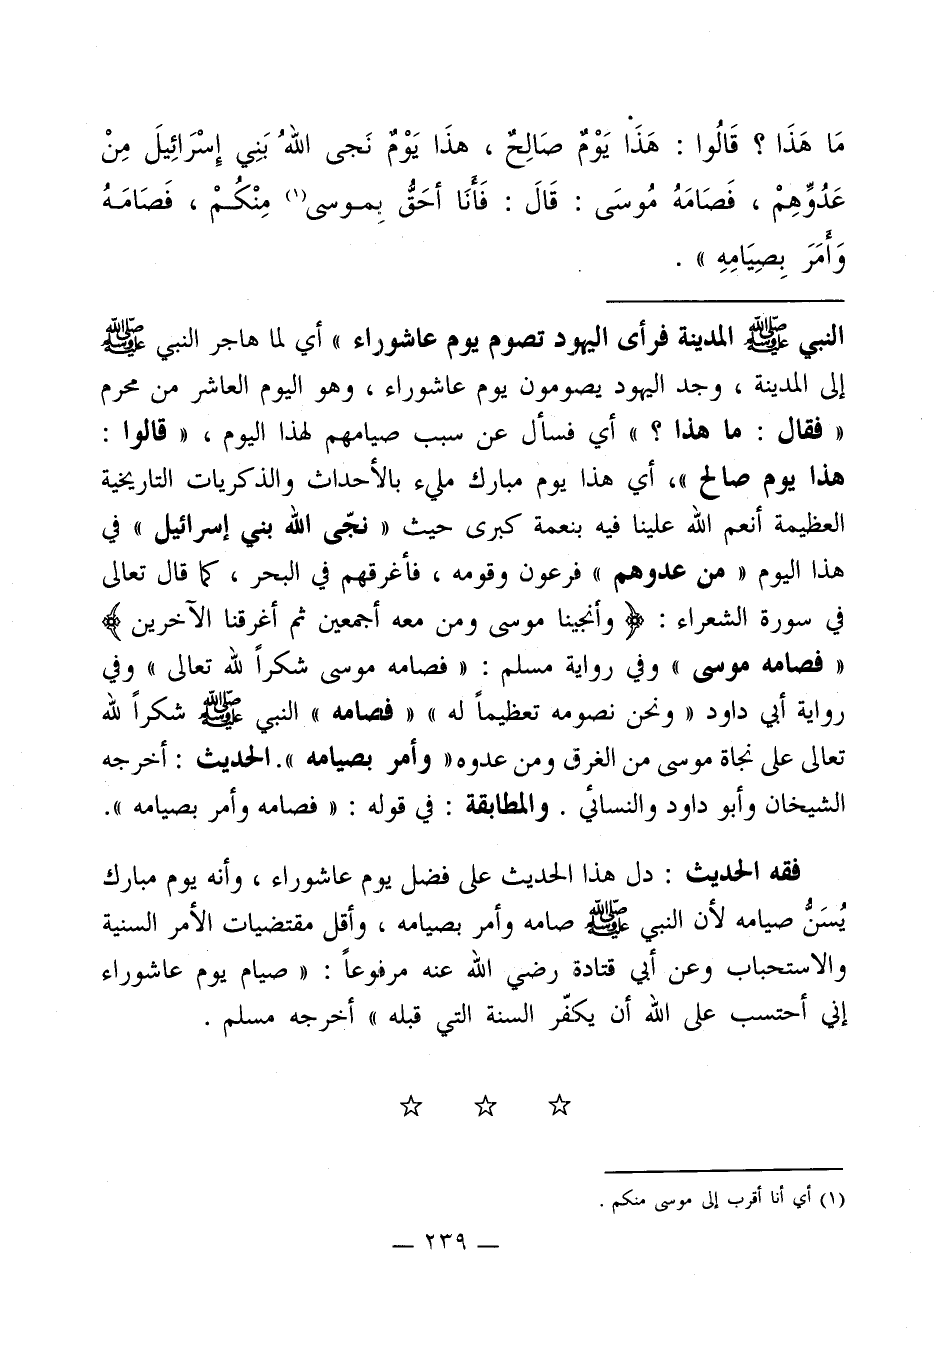 مَا هَذَا ؟ قَالُوا : هَذَا يَوْمٌ صَالِحٌ ، هذَا يَوْمٌ نَجى اللهُ بَنِي إِسْرَائِيلَ مِنْ
عَدُوِّهِمْ ، فَصَامَهُ مُوسَى : قَالَ : فَأَنَا أحَقُّ بِمـوسى(١) مِنْكُـمْ ، فَصَامَـهُ
وَأَمَرَ بِصِيَامِهِ » .
النبي ﷺ المدينة فرأى اليهود تصوم يوم عاشوراء » أي لما هاجر النبي ﷺ
إلى المدينة ، وجد اليهود يصومون يوم عاشوراء ، وهو اليوم العاشر من محرم
« فقال : ما هذا ؟ » أي فسأل عن سبب صيامهم لهذا اليوم ، « قالوا :
هذا يوم صالح »، أي هذا يوم مبارك مليء بالأحداث والذكريات التاريخية
العظيمة أنعم الله علينا فيه بنعمة كبرى حيث « نجّى الله بني إسرائيل » في
هذا اليوم « من عدوهم » فرعون وقومه ، فأغرقهم في البحر ، كما قال تعالى
في سورة الشعراء : ﴿ وأنجينا موسى ومن معه أجمعين ثم أغرقنا الآخرين ﴾
« فصامه موسى » وفي رواية مسلم : « فصامه موسى شكراً لله تعالى » وفي
رواية أبي داود « ونحن نصومه تعظيماً له » « فصامه » النبي ﷺ شكراً لله
تعالى على نجاة موسى من الغرق ومن عدوه« وأمر بصيامه ». الحديث : أخرجه
الشيخان وأبو داود والنسائي . والمطابقة : في قوله : « فصامه وأمر بصيامه ».
فقه الحديث : دل هذا الحديث على فضل يوم عاشوراء ، وأنه يوم مبارك
يُسَنُّ صيامه لأن النبي ﷺ صامه وأمر بصيامه ، وأقل مقتضيات الأمر السنية
والاستحباب وعن أبي قتادة رضي الله عنه مرفوعاً : « صيام يوم عاشوراء
إني أحتسب على الله أن يكفّر السنة التي قبله » أخرجه مسلم .
☆ ☆ ☆
(١) أي أنا أقرب إلى موسى منكم .
— ٢٣٩ —